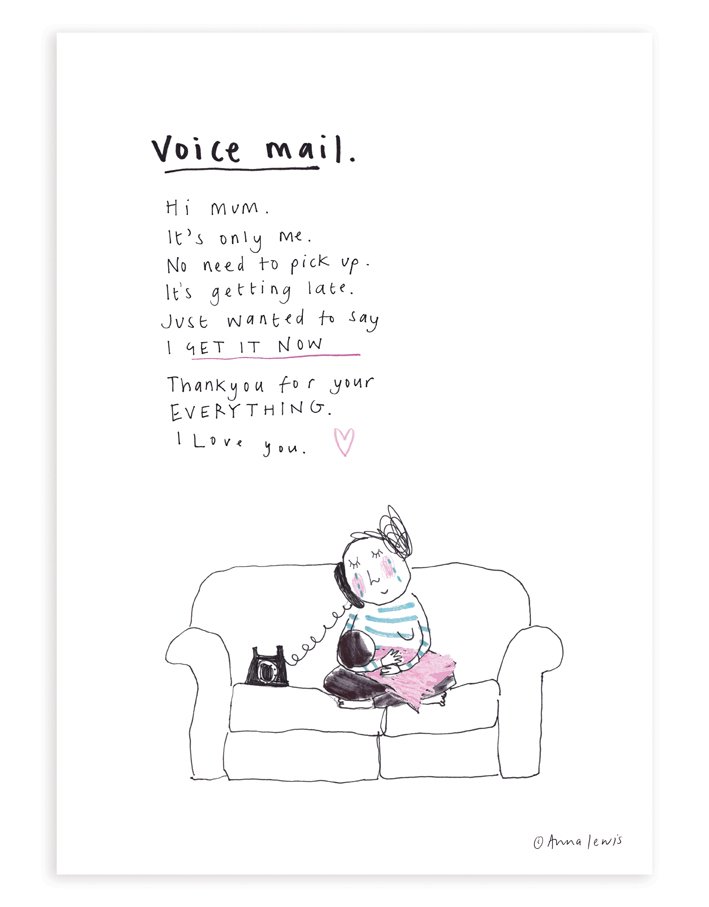 Voice mail.
Hi mum.
It's only me.
No need to pick up.
It's getting late.
Just wanted to say
I GET IT NOW
Thankyou for your
EVERYTHING.
I Love you.
© Anna Lewis